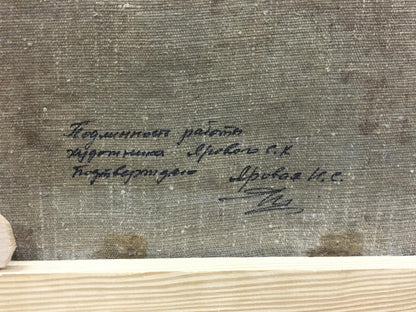 Подлинность работы
художника Ярового С.К
Подтверждаю Яровая И.С.